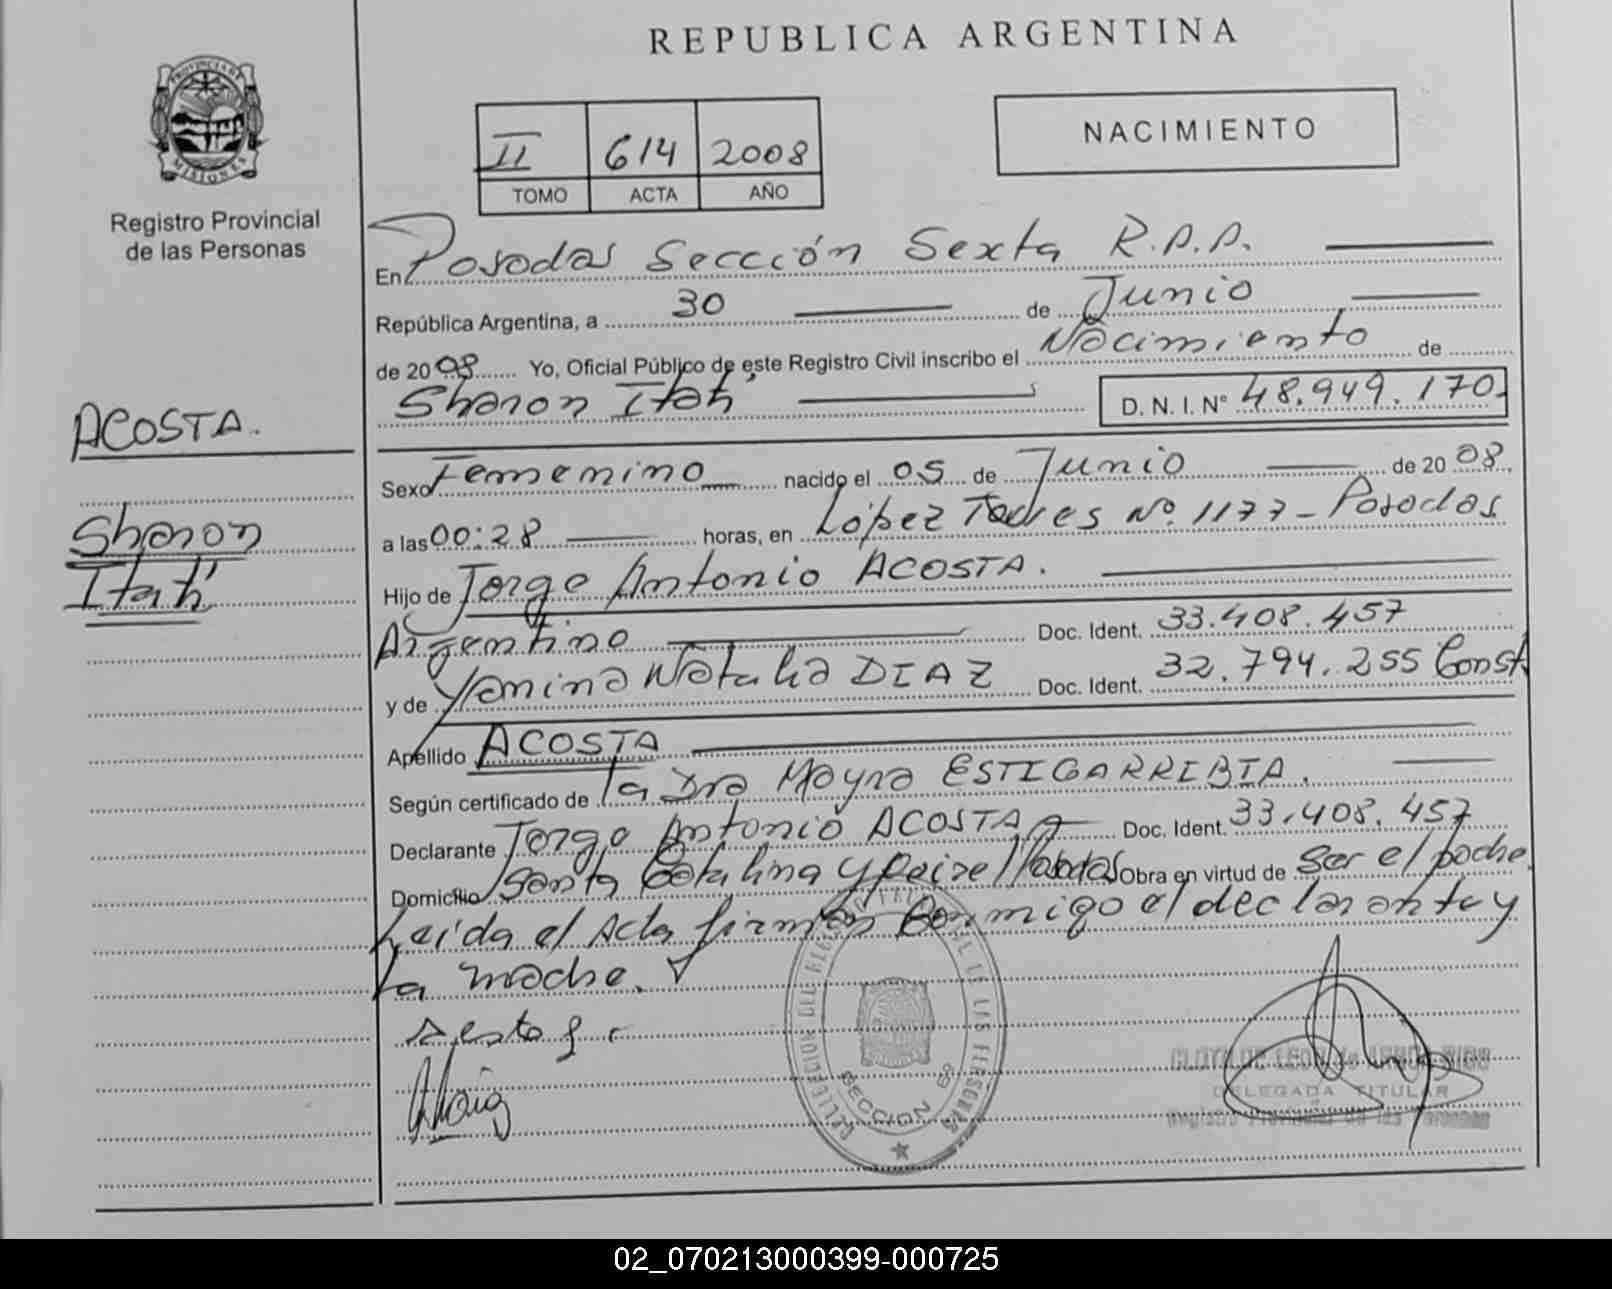 REPUBLICA ARGENTINA
PROVINCIA DE MISIONES
Registro Provincial
de las Personas
II 614 2008
TOMO ACTA AÑO
NACIMIENTO
En Posadas Sección Sexta R.P.P.
República Argentina, a 30 de Junio
de 2008 Yo, Oficial Público de este Registro Civil inscribo el Nacimiento de
Sharon Itatí D. N. I. N° 48.949.170
ACOSTA.
Sharon
Itatí
Sexo Femenino nacido el 05 de Junio de 2008
a las 00:28 horas, en López Torres Nº 1177 - Posadas
Hijo de Jorge Antonio ACOSTA.
Argentino Doc. Ident. 33.408.457
y de Yanina Natalia DIAZ Doc. Ident. 32.794.255 Const
Apellido ACOSTA
Según certificado de la Dra Mayra ESTIGARRIBIA.
Declarante Jorge Antonio ACOSTA Doc. Ident. 33.408.457
Domicilio Santa Catalina y Obra en virtud de Ser el padre.
Leída el Acta firman Conmigo el declarante y
la madre.
Acosta J
SECCION 6ª
DELEGADA TITULAR
Registro Provincial de las Personas
02_070213000399-000725